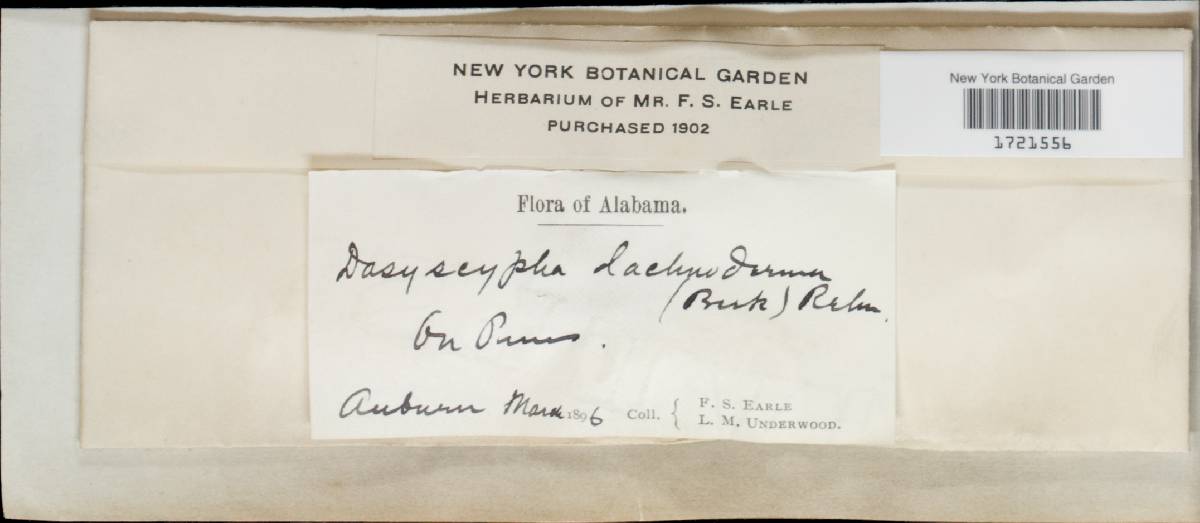 NEW YORK BOTANICAL GARDEN
HERBARIUM OF MR. F. S. EARLE
PURCHASED 1902
New York Botanical Garden
1721556
Flora of Alabama.
Dasyscypha lachnoderma
(Berk) Rehm.
On Pinus.
Auburn March 1896 Coll. { F. S. EARLE
L. M. UNDERWOOD.